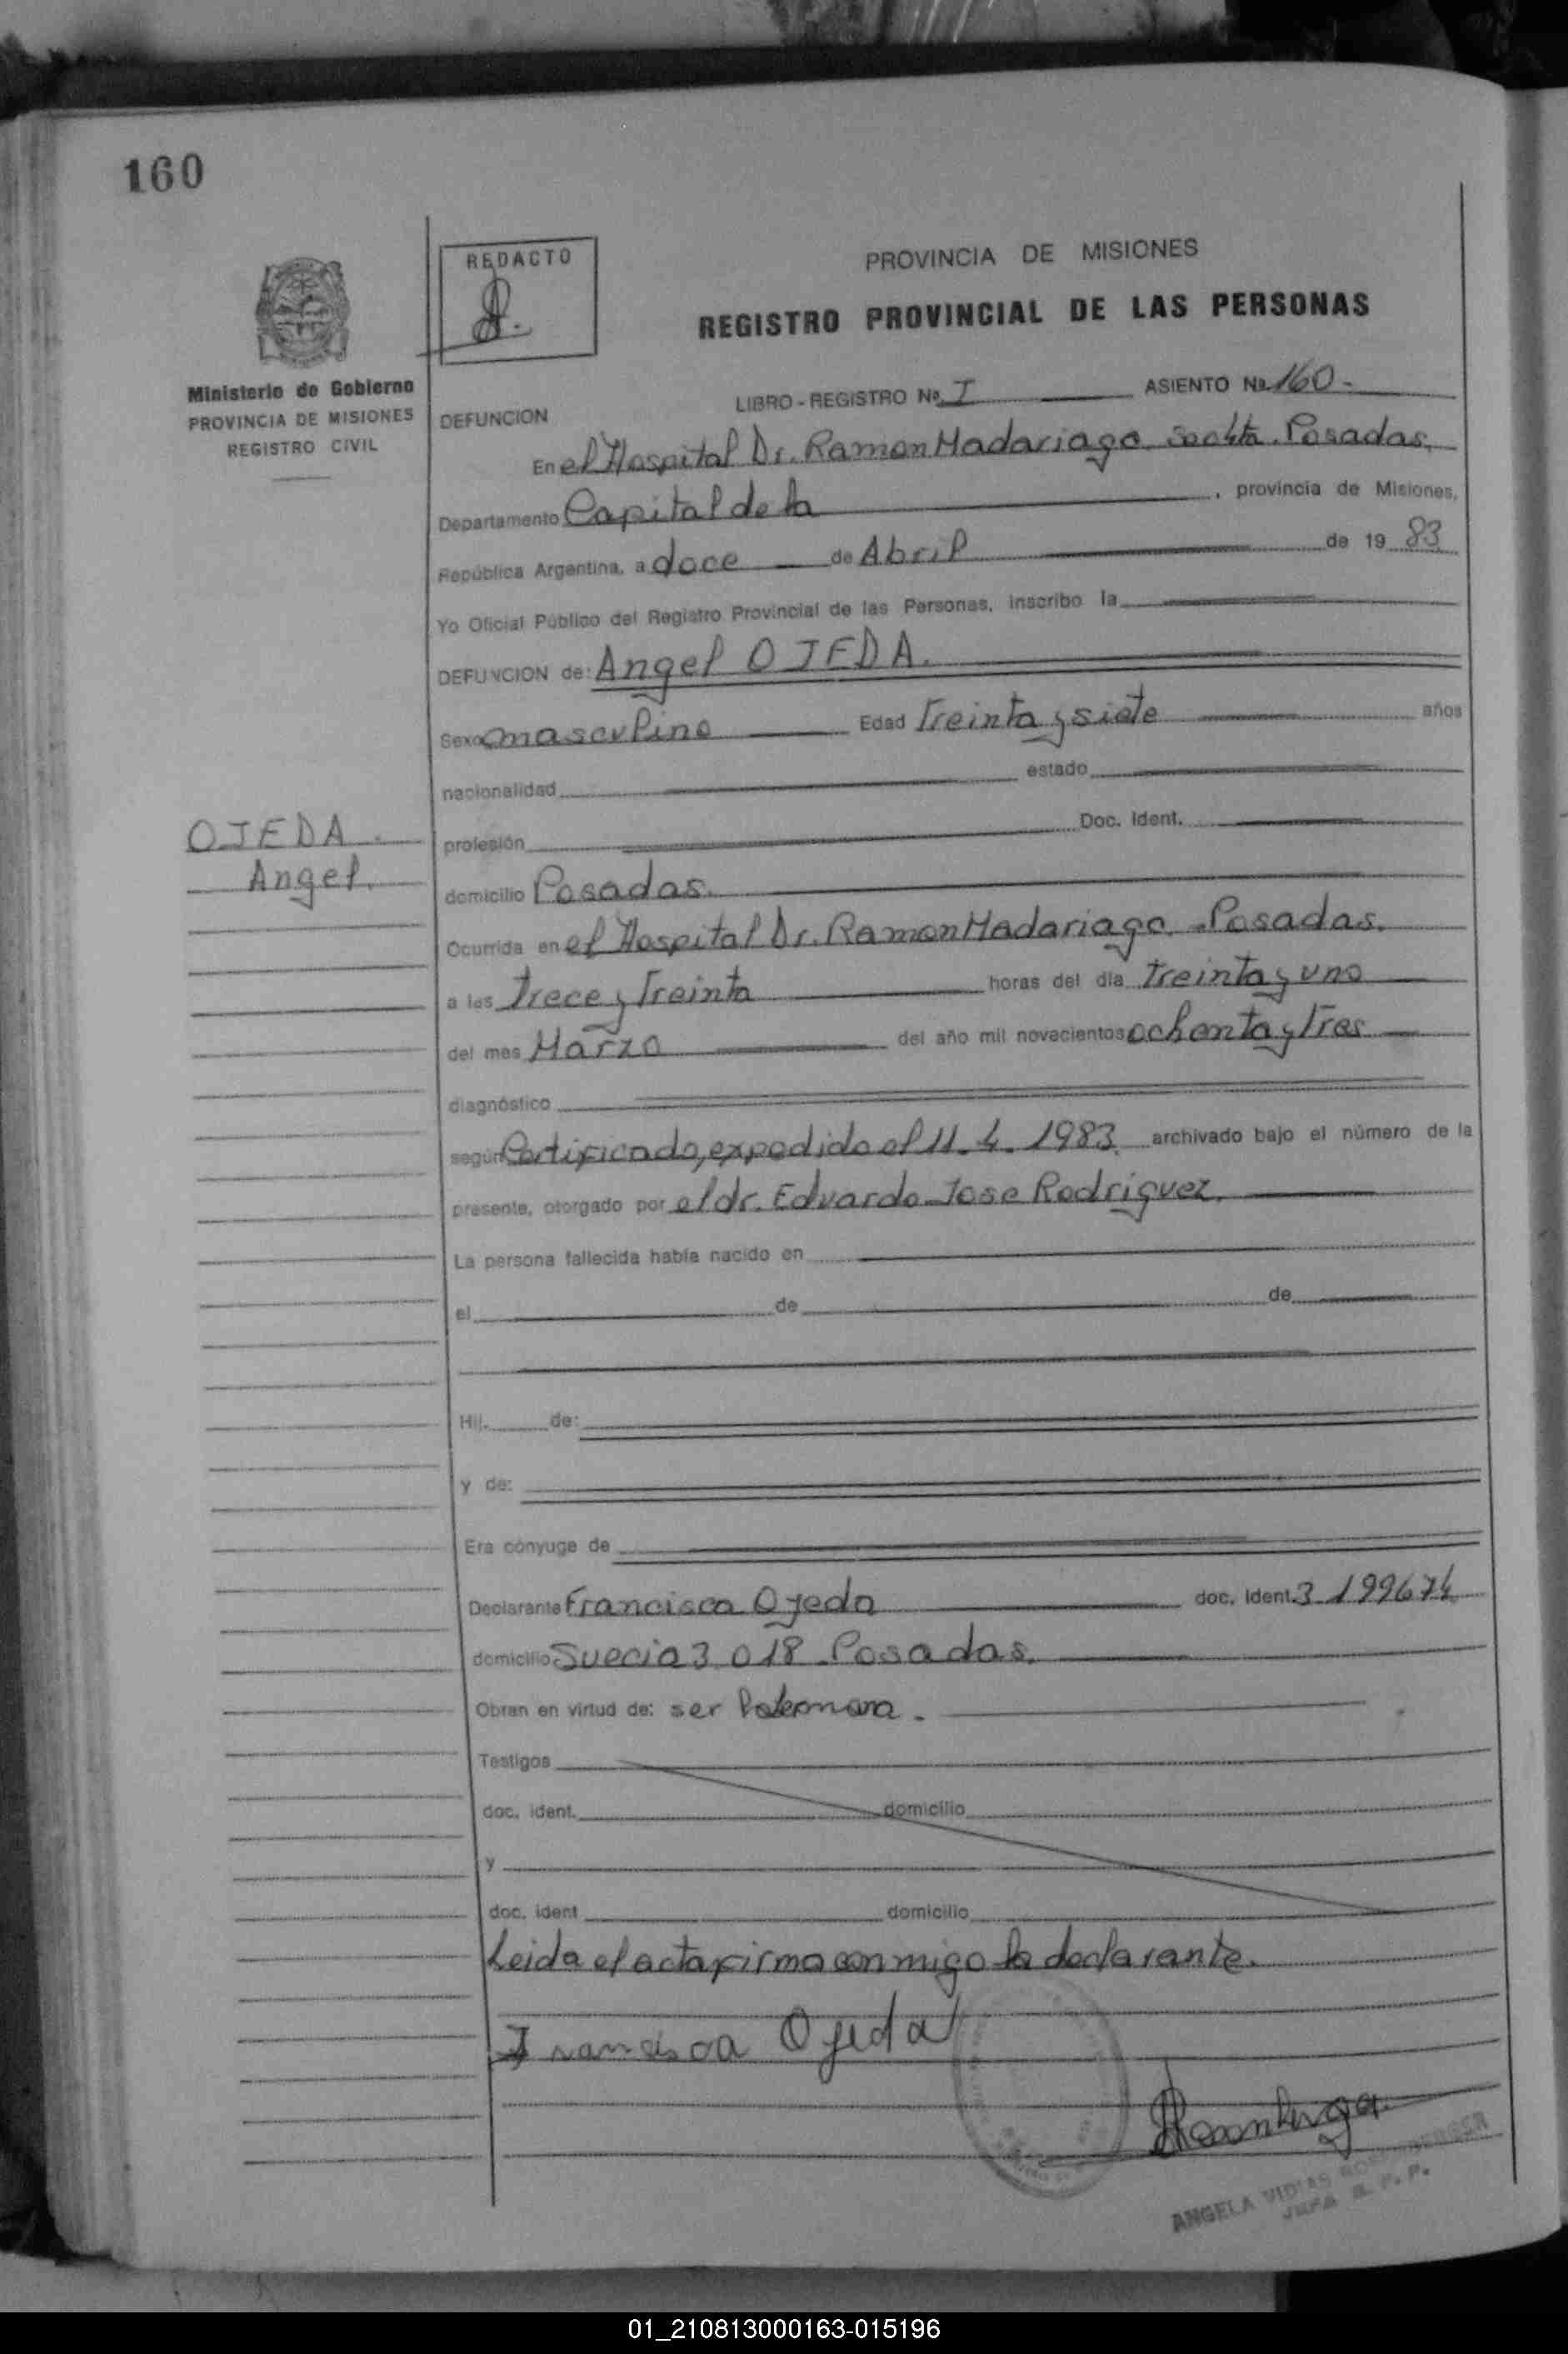 160
REDACTO
PROVINCIA DE MISIONES
REGISTRO PROVINCIAL DE LAS PERSONAS
Ministerio de Gobierno
PROVINCIA DE MISIONES
REGISTRO CIVIL
LIBRO - REGISTRO No. I ASIENTO No. 160.-
DEFUNCION
En el Hospital Dr. Ramon Madariaga. Posadas,
Departamento Capital de la , provincia de Misiones,
República Argentina, a doce de Abril de 19 83
Yo Oficial Público del Registro Provincial de las Personas, inscribo la
DEFUNCION de: Angel OJEDA.
Sexo masculino Edad Treinta y siete años
nacionalidad estado
profesión Doc. Ident.
OJEDA.
Angel.
domicilio Posadas.
Ocurrida en el Hospital Dr. Ramon Madariaga. Posadas.
a las Trece y Treinta horas del día treinta y uno
del mes Marzo del año mil novecientos ochenta y Tres
diagnóstico
según Certificado, expedido el 11.4.1983. archivado bajo el número de la
presente, otorgado por el dr. Eduardo Jose Rodriguez.
La persona fallecida había nacido en
el de de
Hij. de:
y de:
Era cónyuge de
Declarante Francisca Ojeda doc. ident. 3 199674
domicilio Suecia 3 018 Posadas.
Obran en virtud de: ser
Testigos
doc. ident. domicilio
y
doc. ident domicilio
Leida el acta firma conmigo la declarante.
Francisca Ojeda
ANGELA
JEFA R. P. P.
01_210813000163-015196